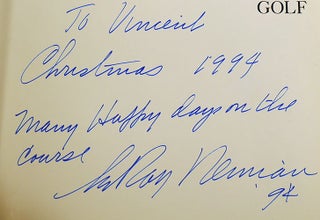 GOLF
To Vincent
Christmas 1994
Many Happy days on the
Course
LeRoy Neiman
94